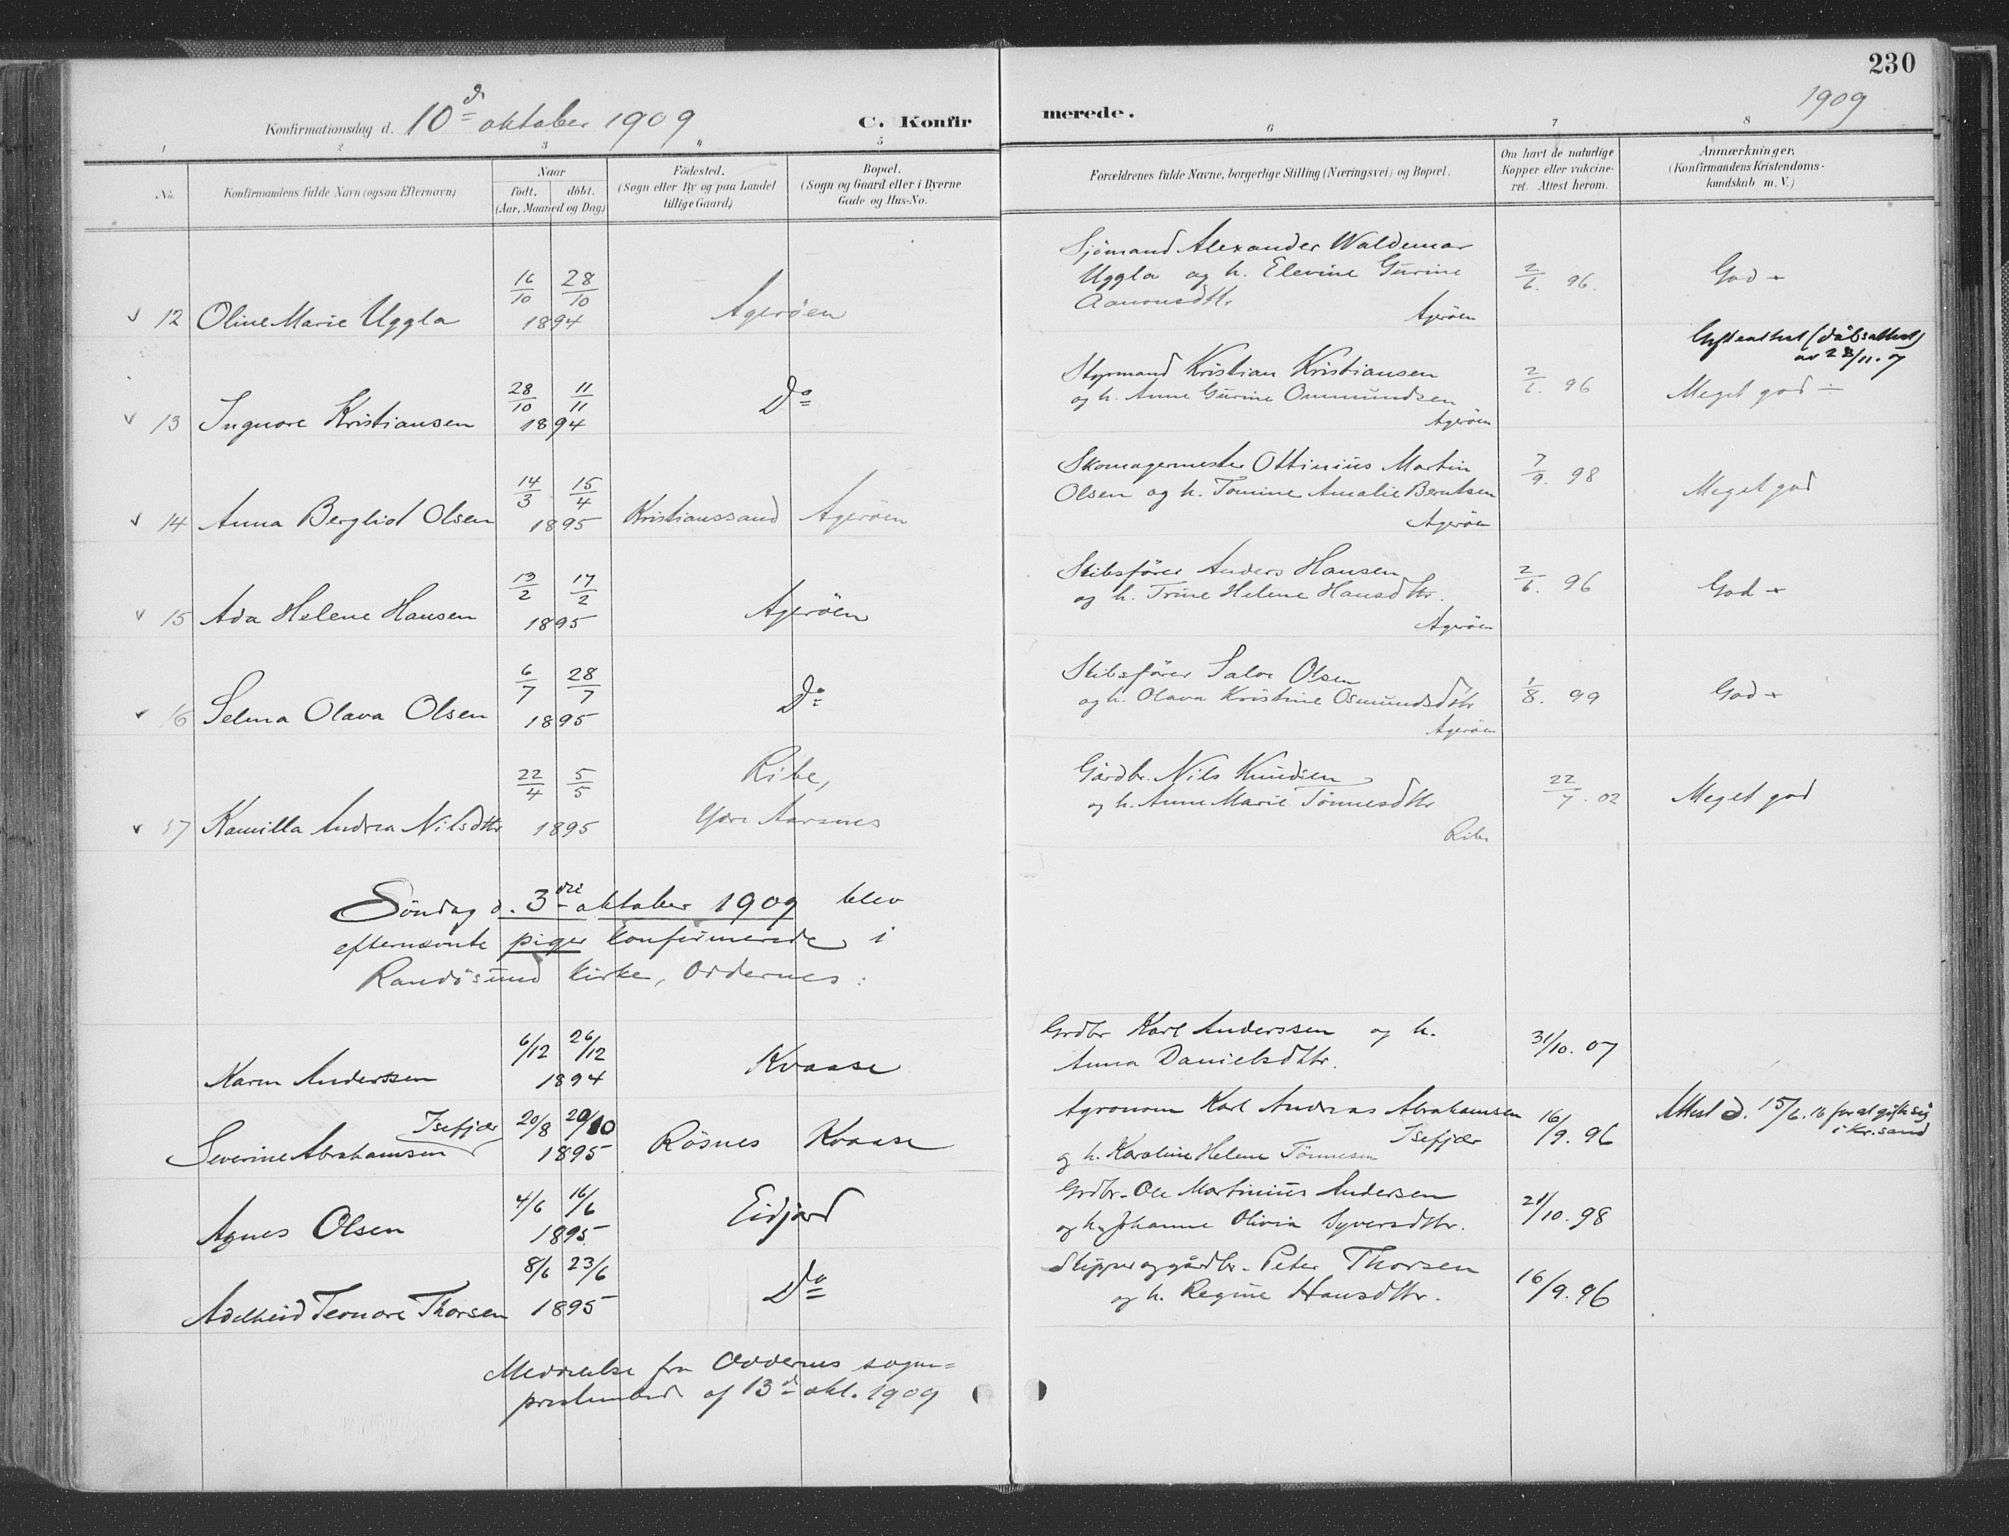 230
Konfirmationsdag d. 10d oktober 1909 C. Konfirmerede. 1909
1 2 3 4 5 6 7 8
No. Konfirmandens fulde Navn (ogsaa Efternavn) Naar født. døbt. (Aar, Maaned og Dag) Fødested. (Sogn eller By og paa Landet tillige Gaard) Bopæl. (Sogn og Gaard eller i Byerne Gade og Hus-No. Forældrenes fulde Navne, borgerlige Stilling (Næringsvei) og Bopæl. Om havt de naturlige Kopper eller vakcineret. Attest herom. Anmærkninger. (Konfirmandens Kristendomskundskab m. V.)
Sjömand Alexander Waldemar
16/10 28/10 Uggla og h. Elevine Gurine 2/6. 96. God
12 Oline Marie Uggla 1894 Agerøen Aanonsdtr Agerøen
(dåbsattest)
av 28/11. 07
28/10 11/11 Do Styrmand Kristian Kristiansen 2/6. 96 Meget god ÷
13 Ingvore Kristiansen 1894 og h. Anne Gurine Ommundsen
Agerøen
14/3 15/4 Skomagermester Ottinius Martin 7/9. 98
14 Anna Bergliot Olsen 1895 Kristianssand Agerøen Olsen og h. Tomine Amalie Berntsen Meget god
Agerøen
13/2 17/2 Skibsfører Anders Hansen 2/6. 96 God
15 Ada Helene Hansen 1895 Agerøen og h. Trine Helene Hansdtr.
Agerøen
6/7 28/7 Do Skibsfører Salve Olsen 1/8. 99 God
16 Selma Olava Olsen 1895 og h. Olava Kristine Osmundsdtr
Agerøen
22/4 5/5 Ribe, Gårdbr. Nils Knudsen 22/7. 02 Meget god
17 Kamilla Andrea Nilsdtr 1895 Ydre Aarsnes og h. Anne Marie Tönnesdtr
Ribe
Söndag d. 3die oktober 1909 blev
efternævnte piger konfirmerede i
Randösund kirke, Oddernes:
6/12 26/12 Grdbr Karl Anderssen og h. 31/10. 07
Karen Anderssen 1894 Kvaase Anna Danielsdtr.
Isefjær 20/8 20/10 Agronom Karl Andreas Abrahamsen 16/9. 96 Attest d. 15/6. 16 for at gifte sig
i Kr.sand
Severine Abrahamsen 1895 Rösnes Kvaase Isefjær
og h. Karoline Helene Tönnesen
4/6 16/6 Grdbr. Ole Martinius Andersen 21/10. 98
Agnes Olsen 1895 Eidjord og h. Johanne Olivia Syversdtr.
8/6 23/6 Do Skipper og gårdbr. Peter Thorsen 16/9. 96
Adelheid Teonore Thorsen 1895 og h. Regine Hansdtr.
Meddelelse fra Oddernes sogne=
presteembede af 13d okt. 1909